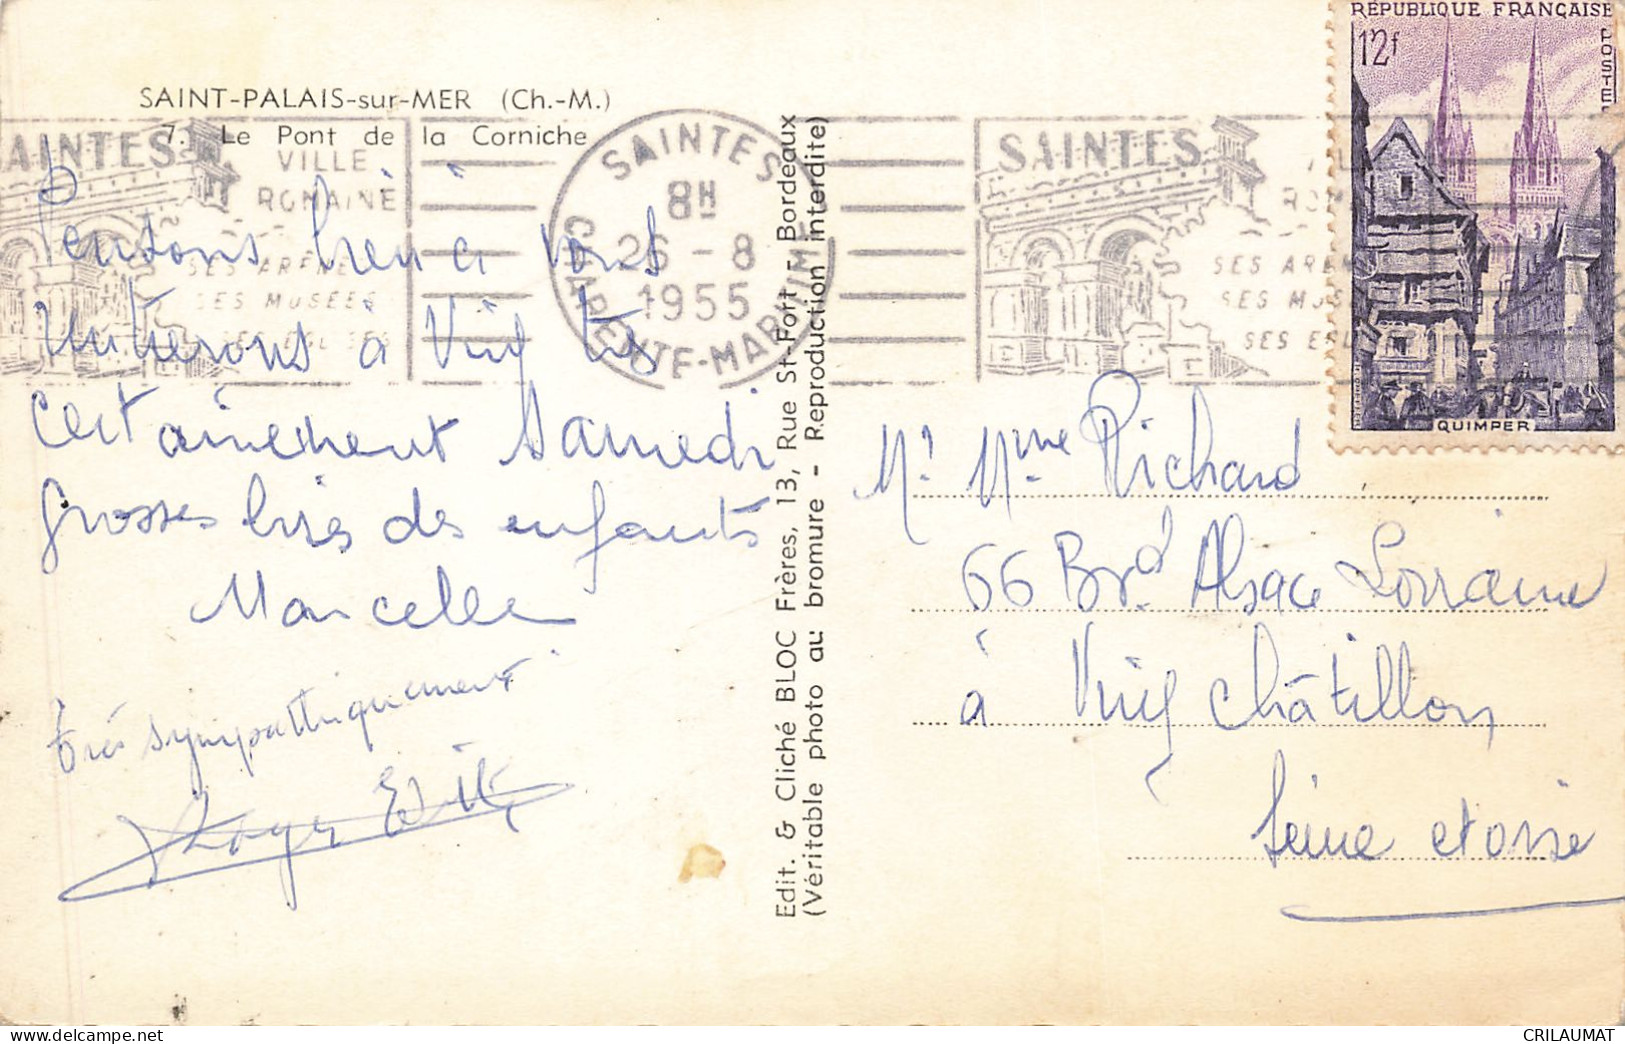 SAINT-PALAIS-sur-MER (Ch.-M.)
7. Le Pont de la Corniche
SAINTES
VILLE
ROMAINE
SES ARÈNE
SES MUSÉES
SES EGLISES
SAINTES
8H
26 - 8
1955
CHARENTE-MARITIME
SAINTES
SES AREN
SES MUS
SES EGL
RÉPUBLIQUE FRANÇAISE
12f
POSTES
QUIMPER
Pensons bien à vous
rentrerons à Viry
certainement Samedi
grosses bises des enfants
Marcelle
très sympathiquement
Roger
Edit. & Cliché BLOC Frères, 13, Rue St-Fort - Bordeaux
(Véritable photo au bromure - Reproduction interdite)
Mr Mme Richard
66 Bvd Alsace Lorraine
à Viry Châtillon
Seine et oise
CRILAUMAT